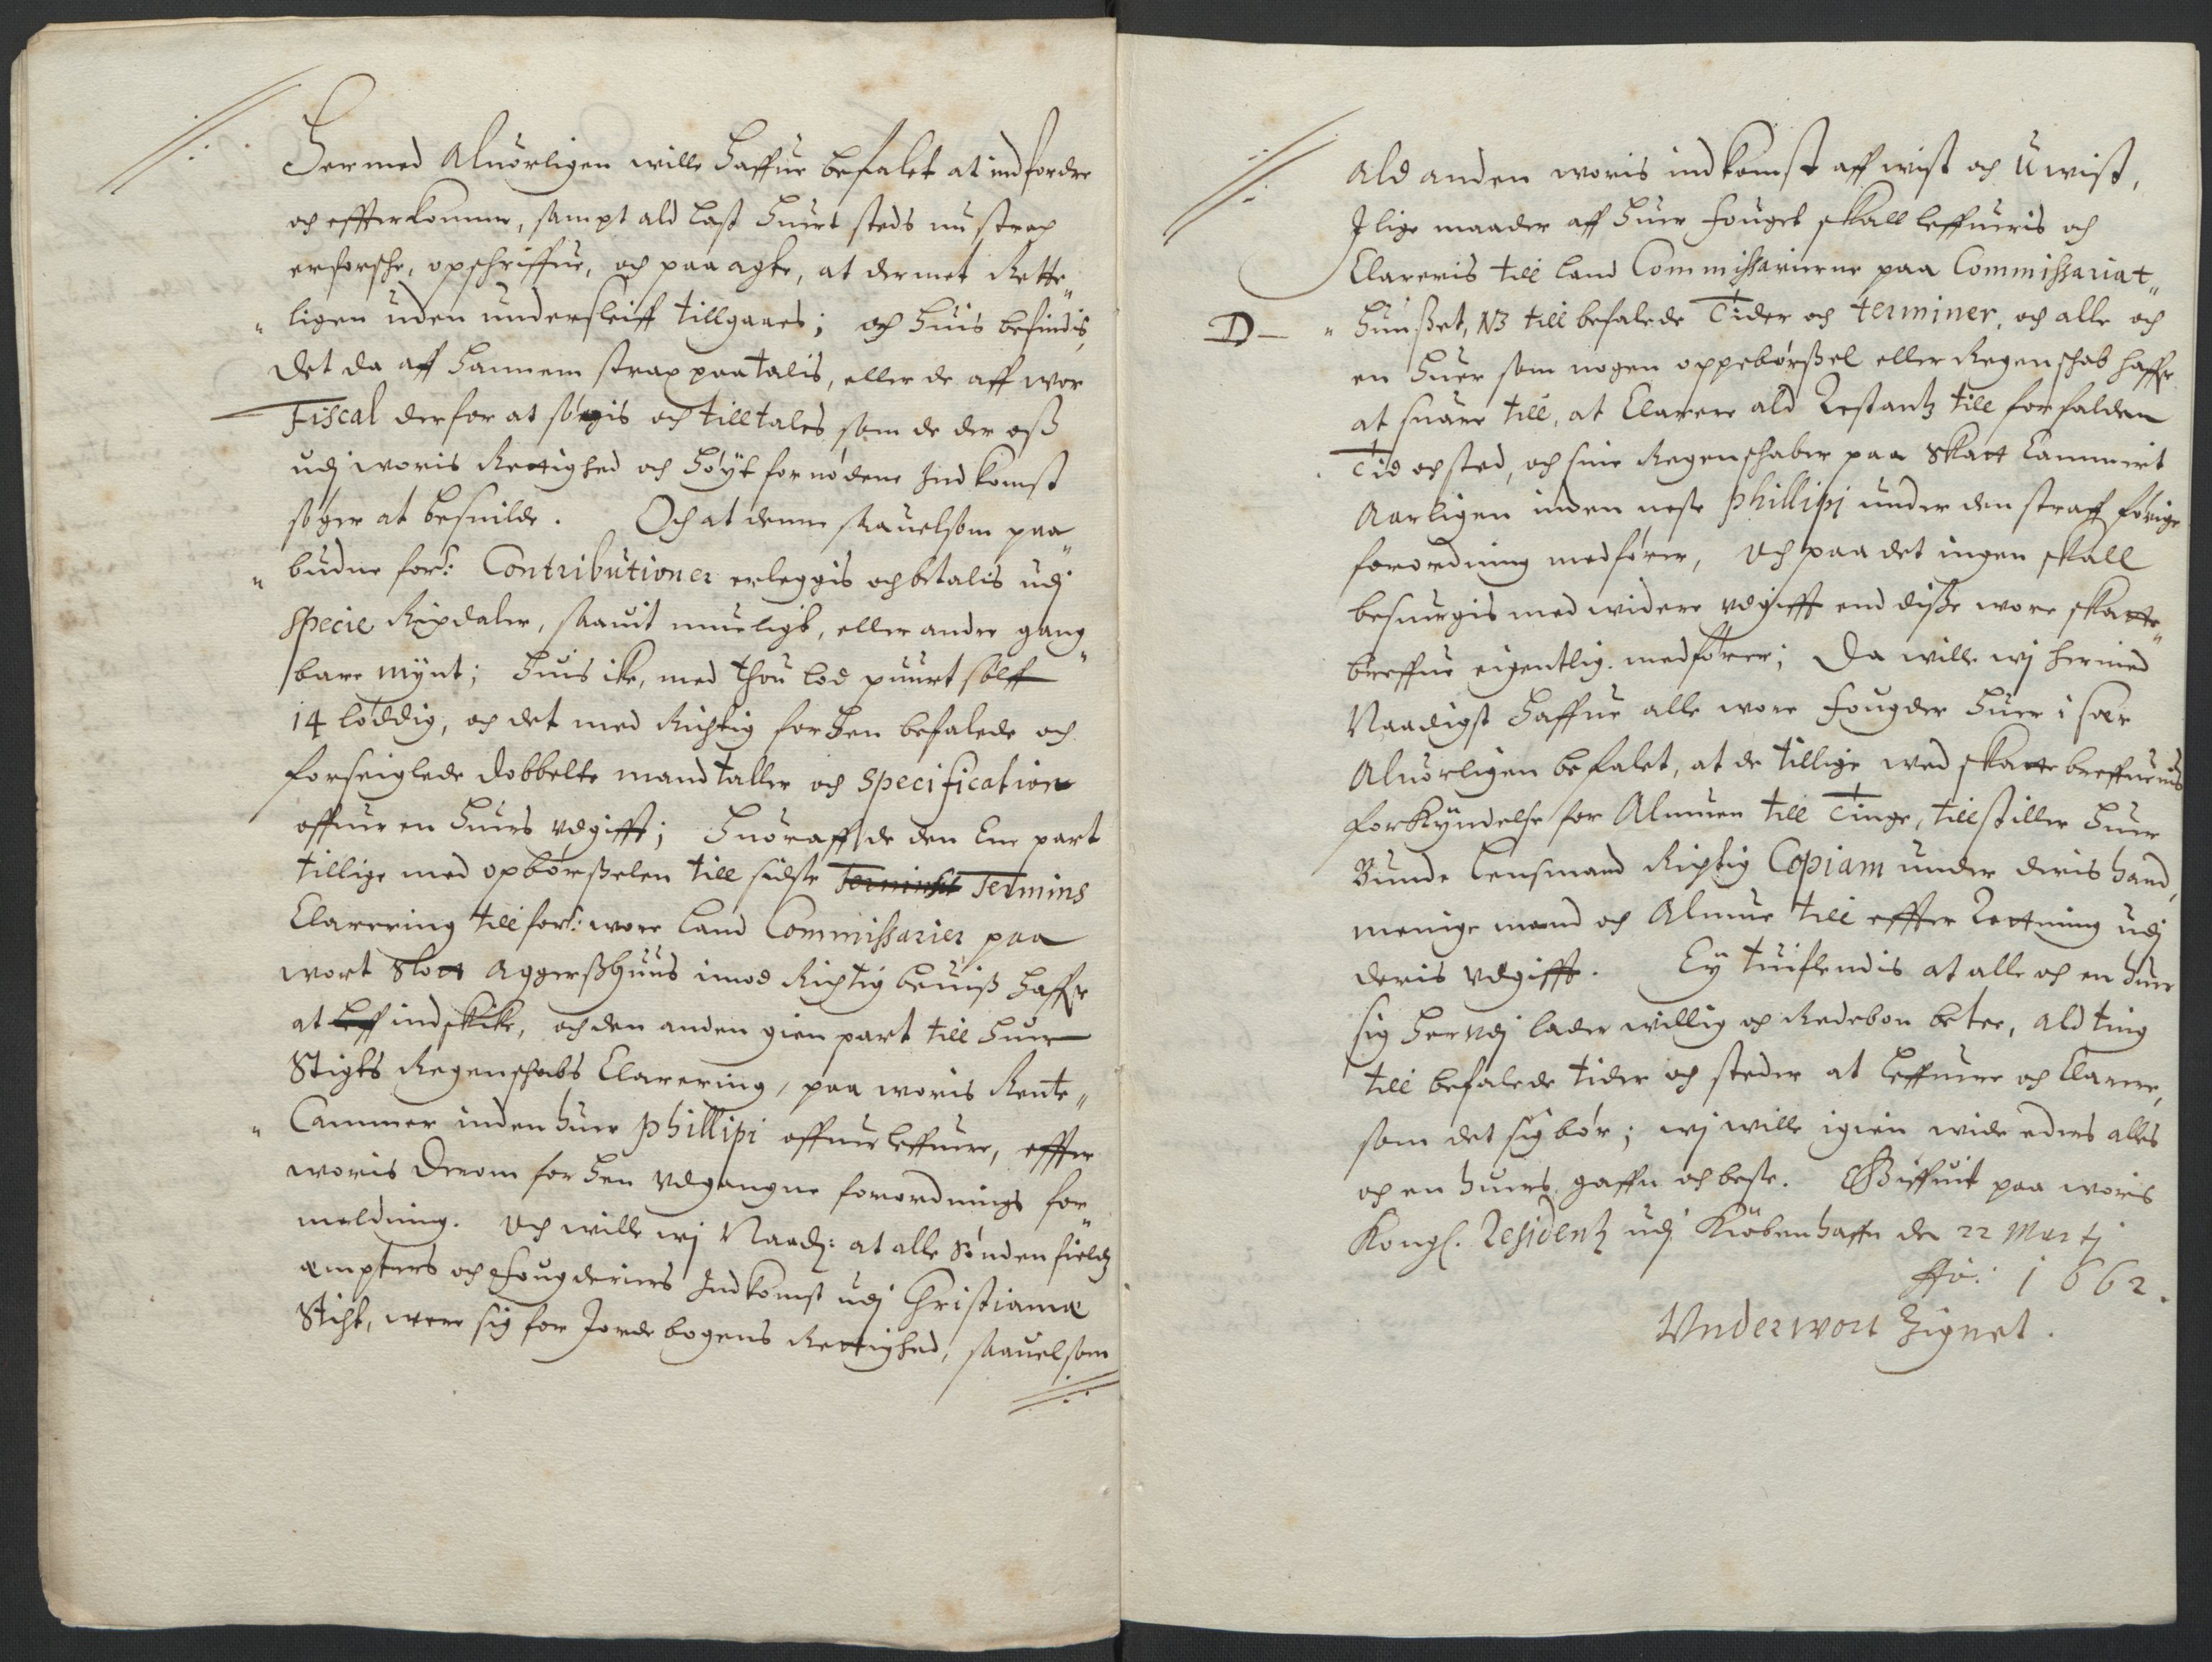 Hermed Aluorligen wille haffue befalet at indfordre
och effterkomme, sampt ald last huert steds nu strax
erforsche, opschriffue, och paa agte, at dermet Rette„
„ ligen uden undersleiff tillgaaes; och huis befindis,
det da aff hannem strax paatalis, eller de aff wor
Fiscal derfor at søgis och tilltales som de der oss
udj woris Rettighed och høyt fornødene Indkomst
søger at besuilde. Och at denne saauelsom paa„
„ budne forn: Contributioner erleggis och betalis udj
Specie Rixdaler, saauit mueligt, eller andre gang„
bare mynt; huis icke, med thou lod puurt sølff
14 løddig, och det med Richtig forhen befalede och
forseiglede dobbelte mandtaller och Specification
offuer en huers udgifft; huoraff de den Ene part
tillige med opbørsselen till sidste Terminst Termins
Clarering till forn: wore Land Commissarier paa
wort Slott Aggersshuus imod Richtig beuiss haffr
at Leff indskicke, och den anden gien part till huer
Stigts Regenschabs Clarering, paa woris Rente„
„ Cammer inden huer Phillipi offuer leffuere, effter
woris derom forhen udgangne forordnings for„
melding. Och wille wj Naadj: at alle Søndenfieldz
ampters och Fougderiers Indkomst udj Christiania
Sticht, were sig for Jordebogens Rettighed, saauelsom
ald anden woris indkomst aff wist och Uwist,
J lige maader aff huer Fouget skall leffueris och
Clareris till Land Commissarierne paa Commissariat„
D— „ huusset, NB till befalede Tider och terminer, och alle och
en huer som nogen oppebørssel eller Regenschab haffr
at suare till, at Clarere ald Restantz till forfalden
Tid och sted, och sine Regenschaber paa Skatt Cammerit
Aarligen inden neste Phillipj under den straff forige
forordning medfører, Och paa det ingen skall
besuergis med widere udgifft end disse wore skatte„
breffue eigentlig. medfører; Da wille wj hermed
Naadigst haffue alle wore Fougder huer i sær
Aluorligen befalet, at de tillige med skatte breffuenis
forkyndelse for Almuen till Tinge, tillstiller huer
Bunde Lensmand Richtig Copiam under deris hand,
menige mand och Almue till effter Rettning udj
deris udgifft. Ey tuiflendis at alle och en huer
sig herudj lader willig och Redebon betee, ald ting
till befalede tider och steder at leffuere och Clarere,
som det sig bør; wj wille igien wide eders alles
och en huers gaffn och beste. Giffuit paa woris
Kongl. Residentz udj Kiøbenhaffn den 22 Martj
Ao: 1662.
Under wort Zignet.